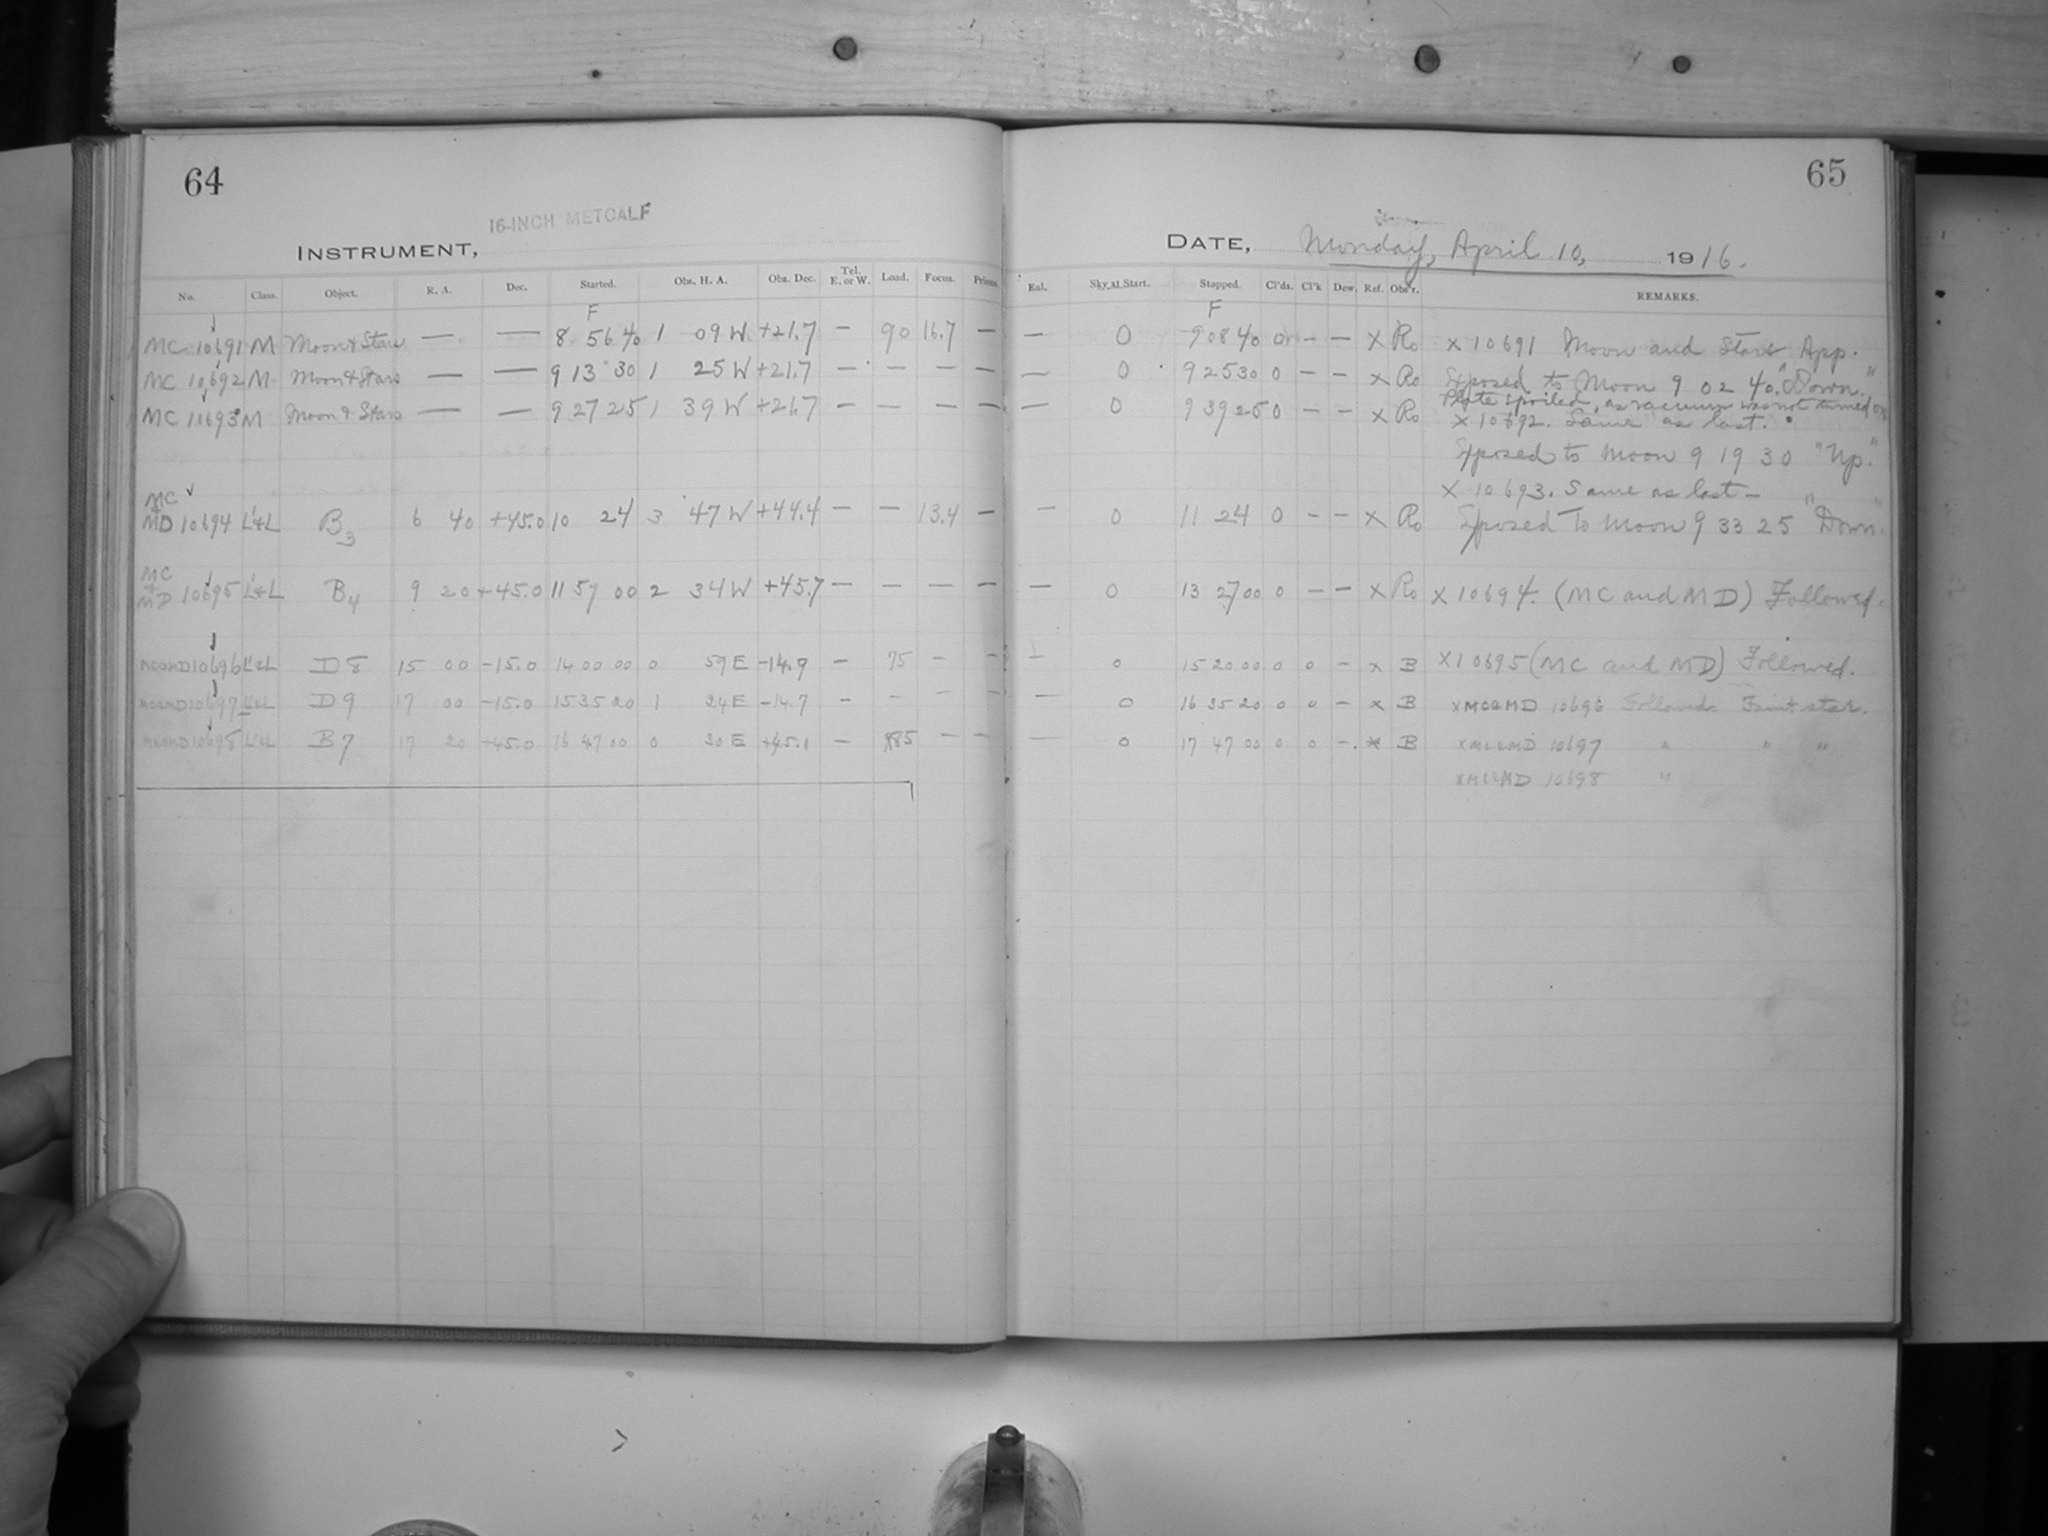 64
16-INCH METCALF
INSTRUMENT,
No. Class. Object. R. A. Dec. Started. Obs. H. A. Obs. Dec. Tel. E. or W. Load. Focus. Prisms.
F
MC 10691 M Moon & Stars — — 8 56 40 1 09 W +21.7 — 90 16.7 —
MC 10692 M Moon & Stars — — 9 13 30 1 25 W +21.7 — — — —
MC 10693 M Moon & Stars — — 9 27 25 1 39 W +21.7 — — — —
MC
MD 10694 L'&L B3 6 40 +45.0 10 24 3 47 W +44.4 — — 13.4 —
MC
&
MD 10695 L'&L B4 9 20 +45.0 11 57 00 2 34 W +45.7 — — — —
MC&MD 10696 L'&L D8 15 00 -15.0 14 00 00 0 59 E -14.9 — 75 — —
MC&MD 10697 L'&L D9 17 00 -15.0 15 35 20 1 24 E -14.7 — — — —
MC&MD 10698 L'&L B7 17 20 +45.0 16 47 00 0 30 E +45.1 — 85 — —
65
DATE, Monday, April 10, 1916.
Enl. Sky at Start. Stopped. Cl'ds. Cl'k Dew. Ref. Obs'r. REMARKS.
F
— 0 9 08 40 0 — — x Ro x 10691 Moon and Stars App.
— 0 9 25 30 0 — — x Ro Exposed to Moon 9 02 40. "Down."
Plate spoiled, as vacuum was not turned on
— 0 9 39 25 0 — — x Ro x 10692. Same as last.
Exposed to Moon 9 19 30 "Up."
x 10693. Same as last —
— 0 11 24 0 — — x Ro Exposed to Moon 9 33 25 "Down"
— 0 13 27 00 0 — — x Ro x 10694. (MC and MD) Followed.
— 0 15 20 00 0 0 — x B x 10695 (MC and MD) Followed.
— 0 16 35 20 0 0 — x B x MC&MD 10696 Followed. Faint star.
— 0 17 47 00 0 0 — . x B x MC&MD 10697 " " "
x MC&MD 10698 "